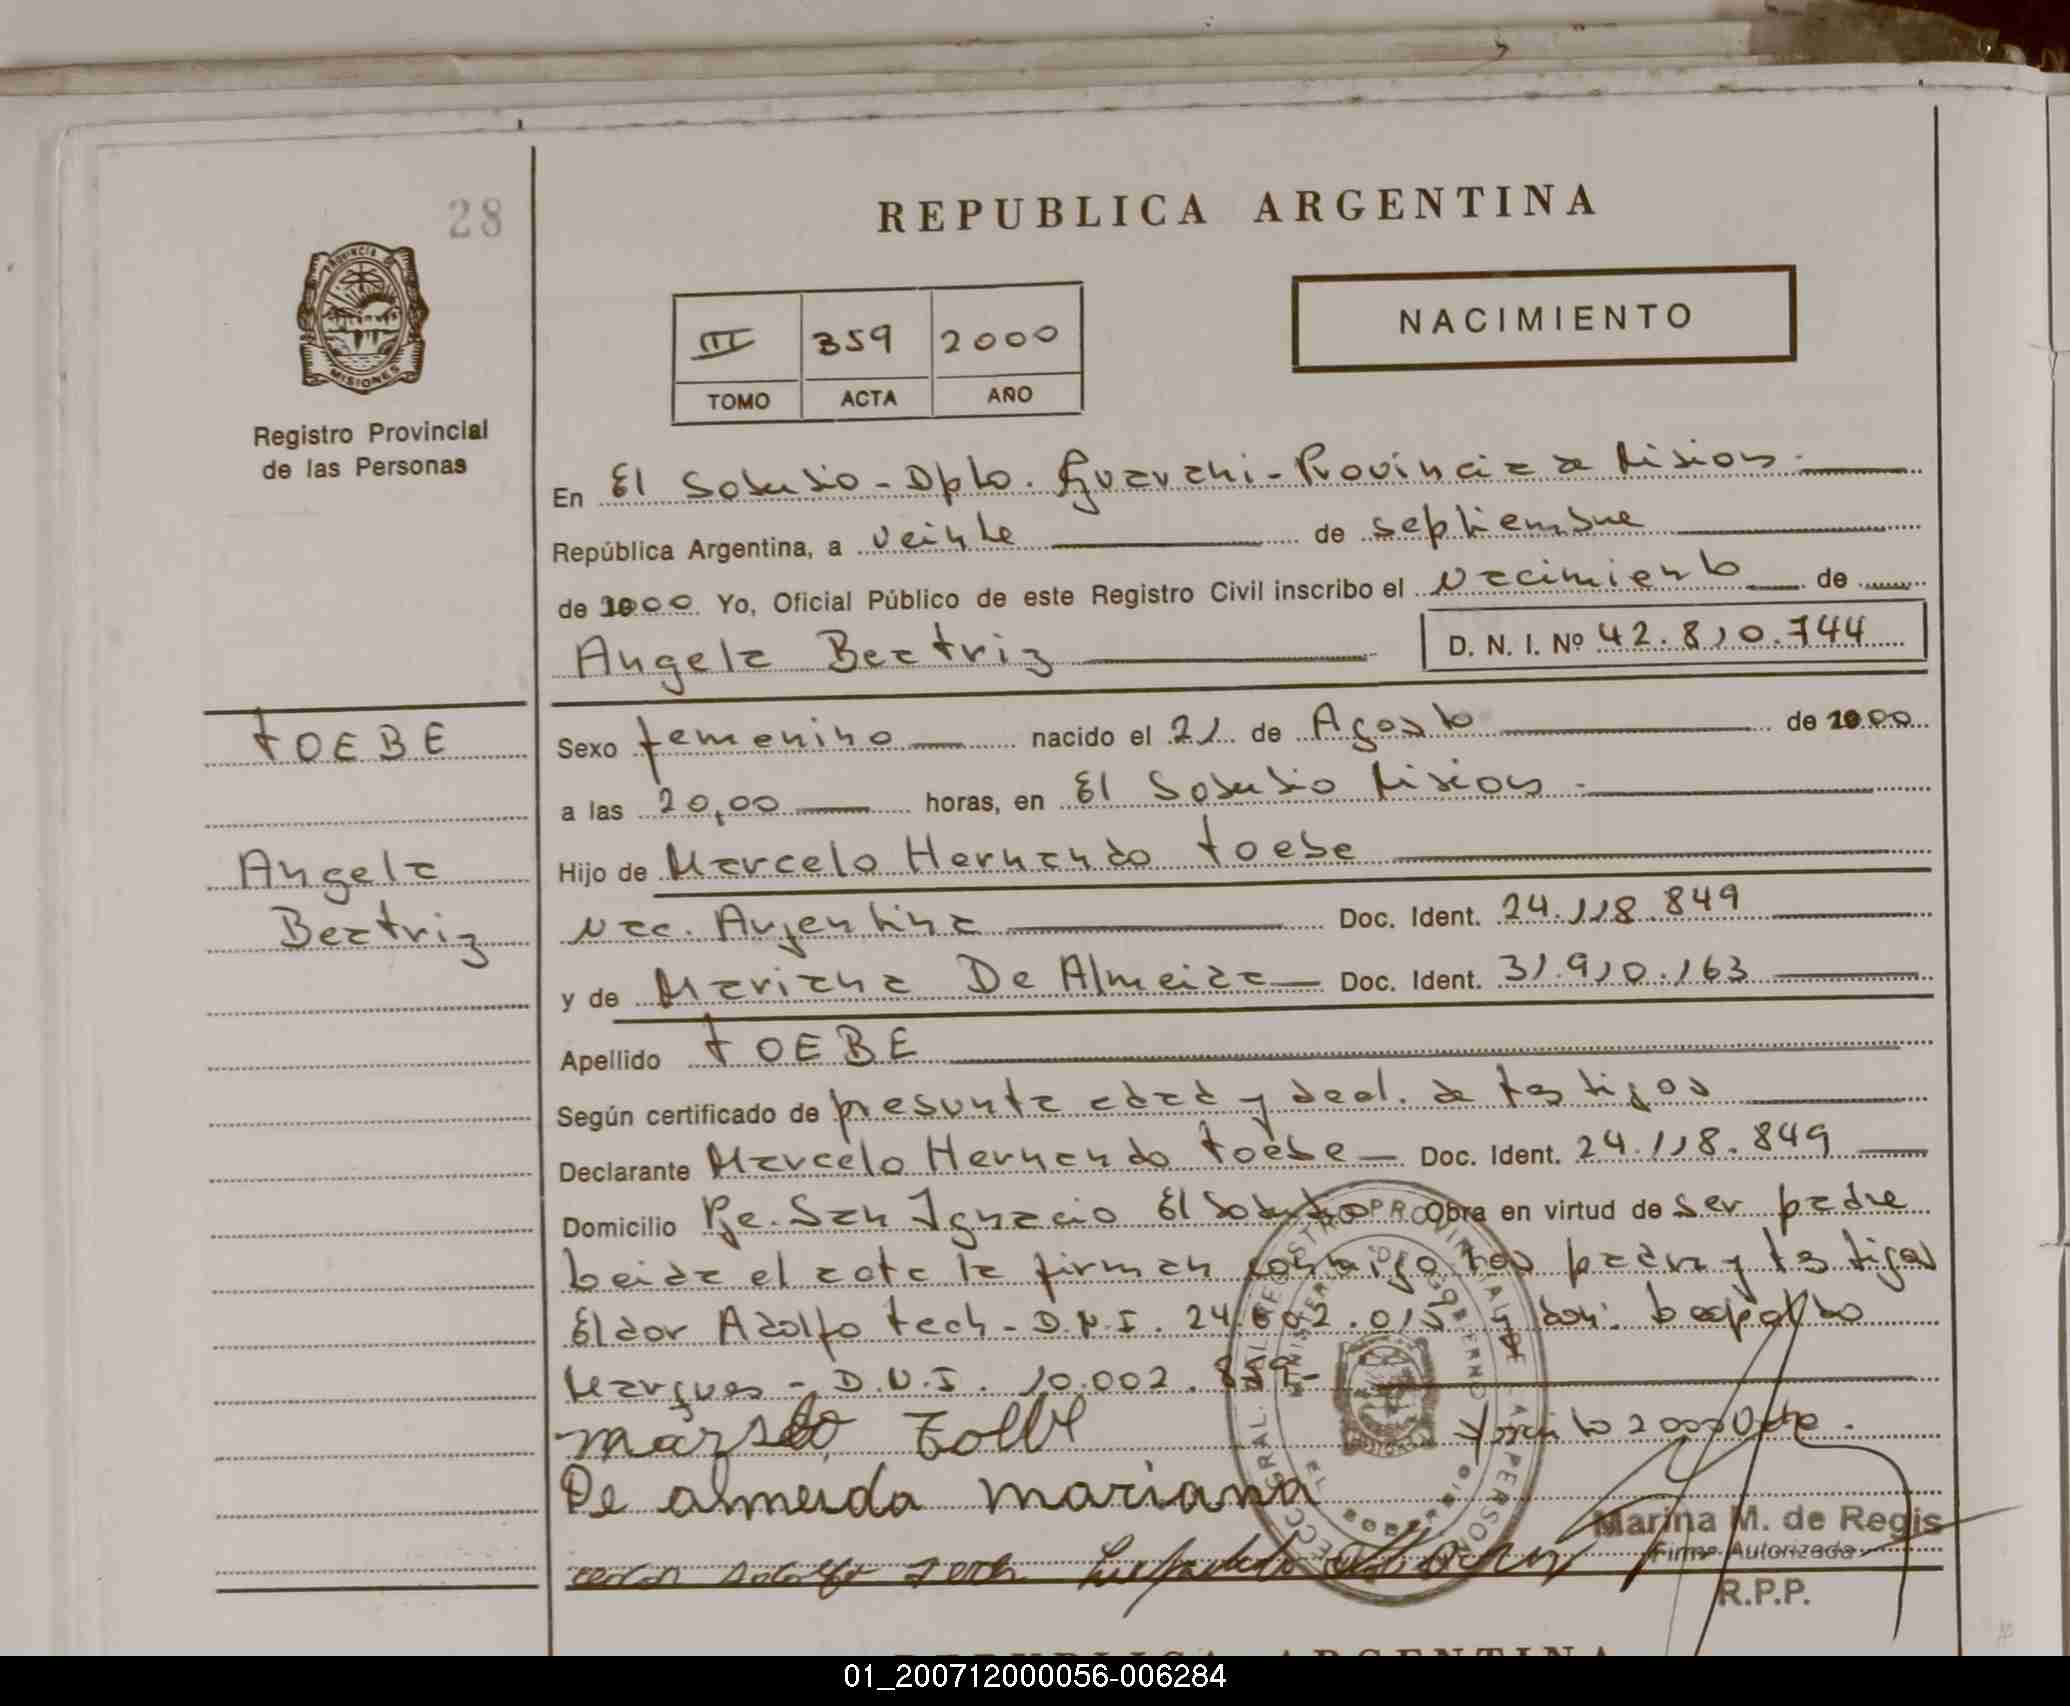 28
REPUBLICA ARGENTINA
PROVINCIA DE
MISIONES
Registro Provincial
de las Personas
III 359 2000
TOMO ACTA AÑO
NACIMIENTO
En El Soberbio - Dpto. Guarani - Provincia de Misiones.
República Argentina, a veinte de septiembre
de 2000 Yo, Oficial Público de este Registro Civil inscribo el nacimiento de
Angela Beatriz D. N. I. Nº 42.810.744
TOEBE
Sexo femenino nacido el 21 de Agosto de 2000
a las 20,00 horas, en El Soberbio Misiones.
Angela
Hijo de Marcelo Hernando Toebe
Beatriz
nac. Argentina Doc. Ident. 24.118.849
y de Mariana De Almeida Doc. Ident. 31.910.163
Apellido TOEBE
Según certificado de presunta edad y decl. de testigos
Declarante Marcelo Hernando Toebe Doc. Ident. 24.118.849
Domicilio Pje. San Ignacio El Soberbio Obra en virtud de ser padre
Leida el acta la firman conmigo los padres y testigos
Eldor Adolfo Tech - D.N.I. 24.602.015 y don:
Marques - D.N.I. 10.002.859-
De almeida mariana
Marina M. de Regis
Firma Autorizada
R.P.P.
REPUBLICA ARGENTINA
01_200712000056-006284